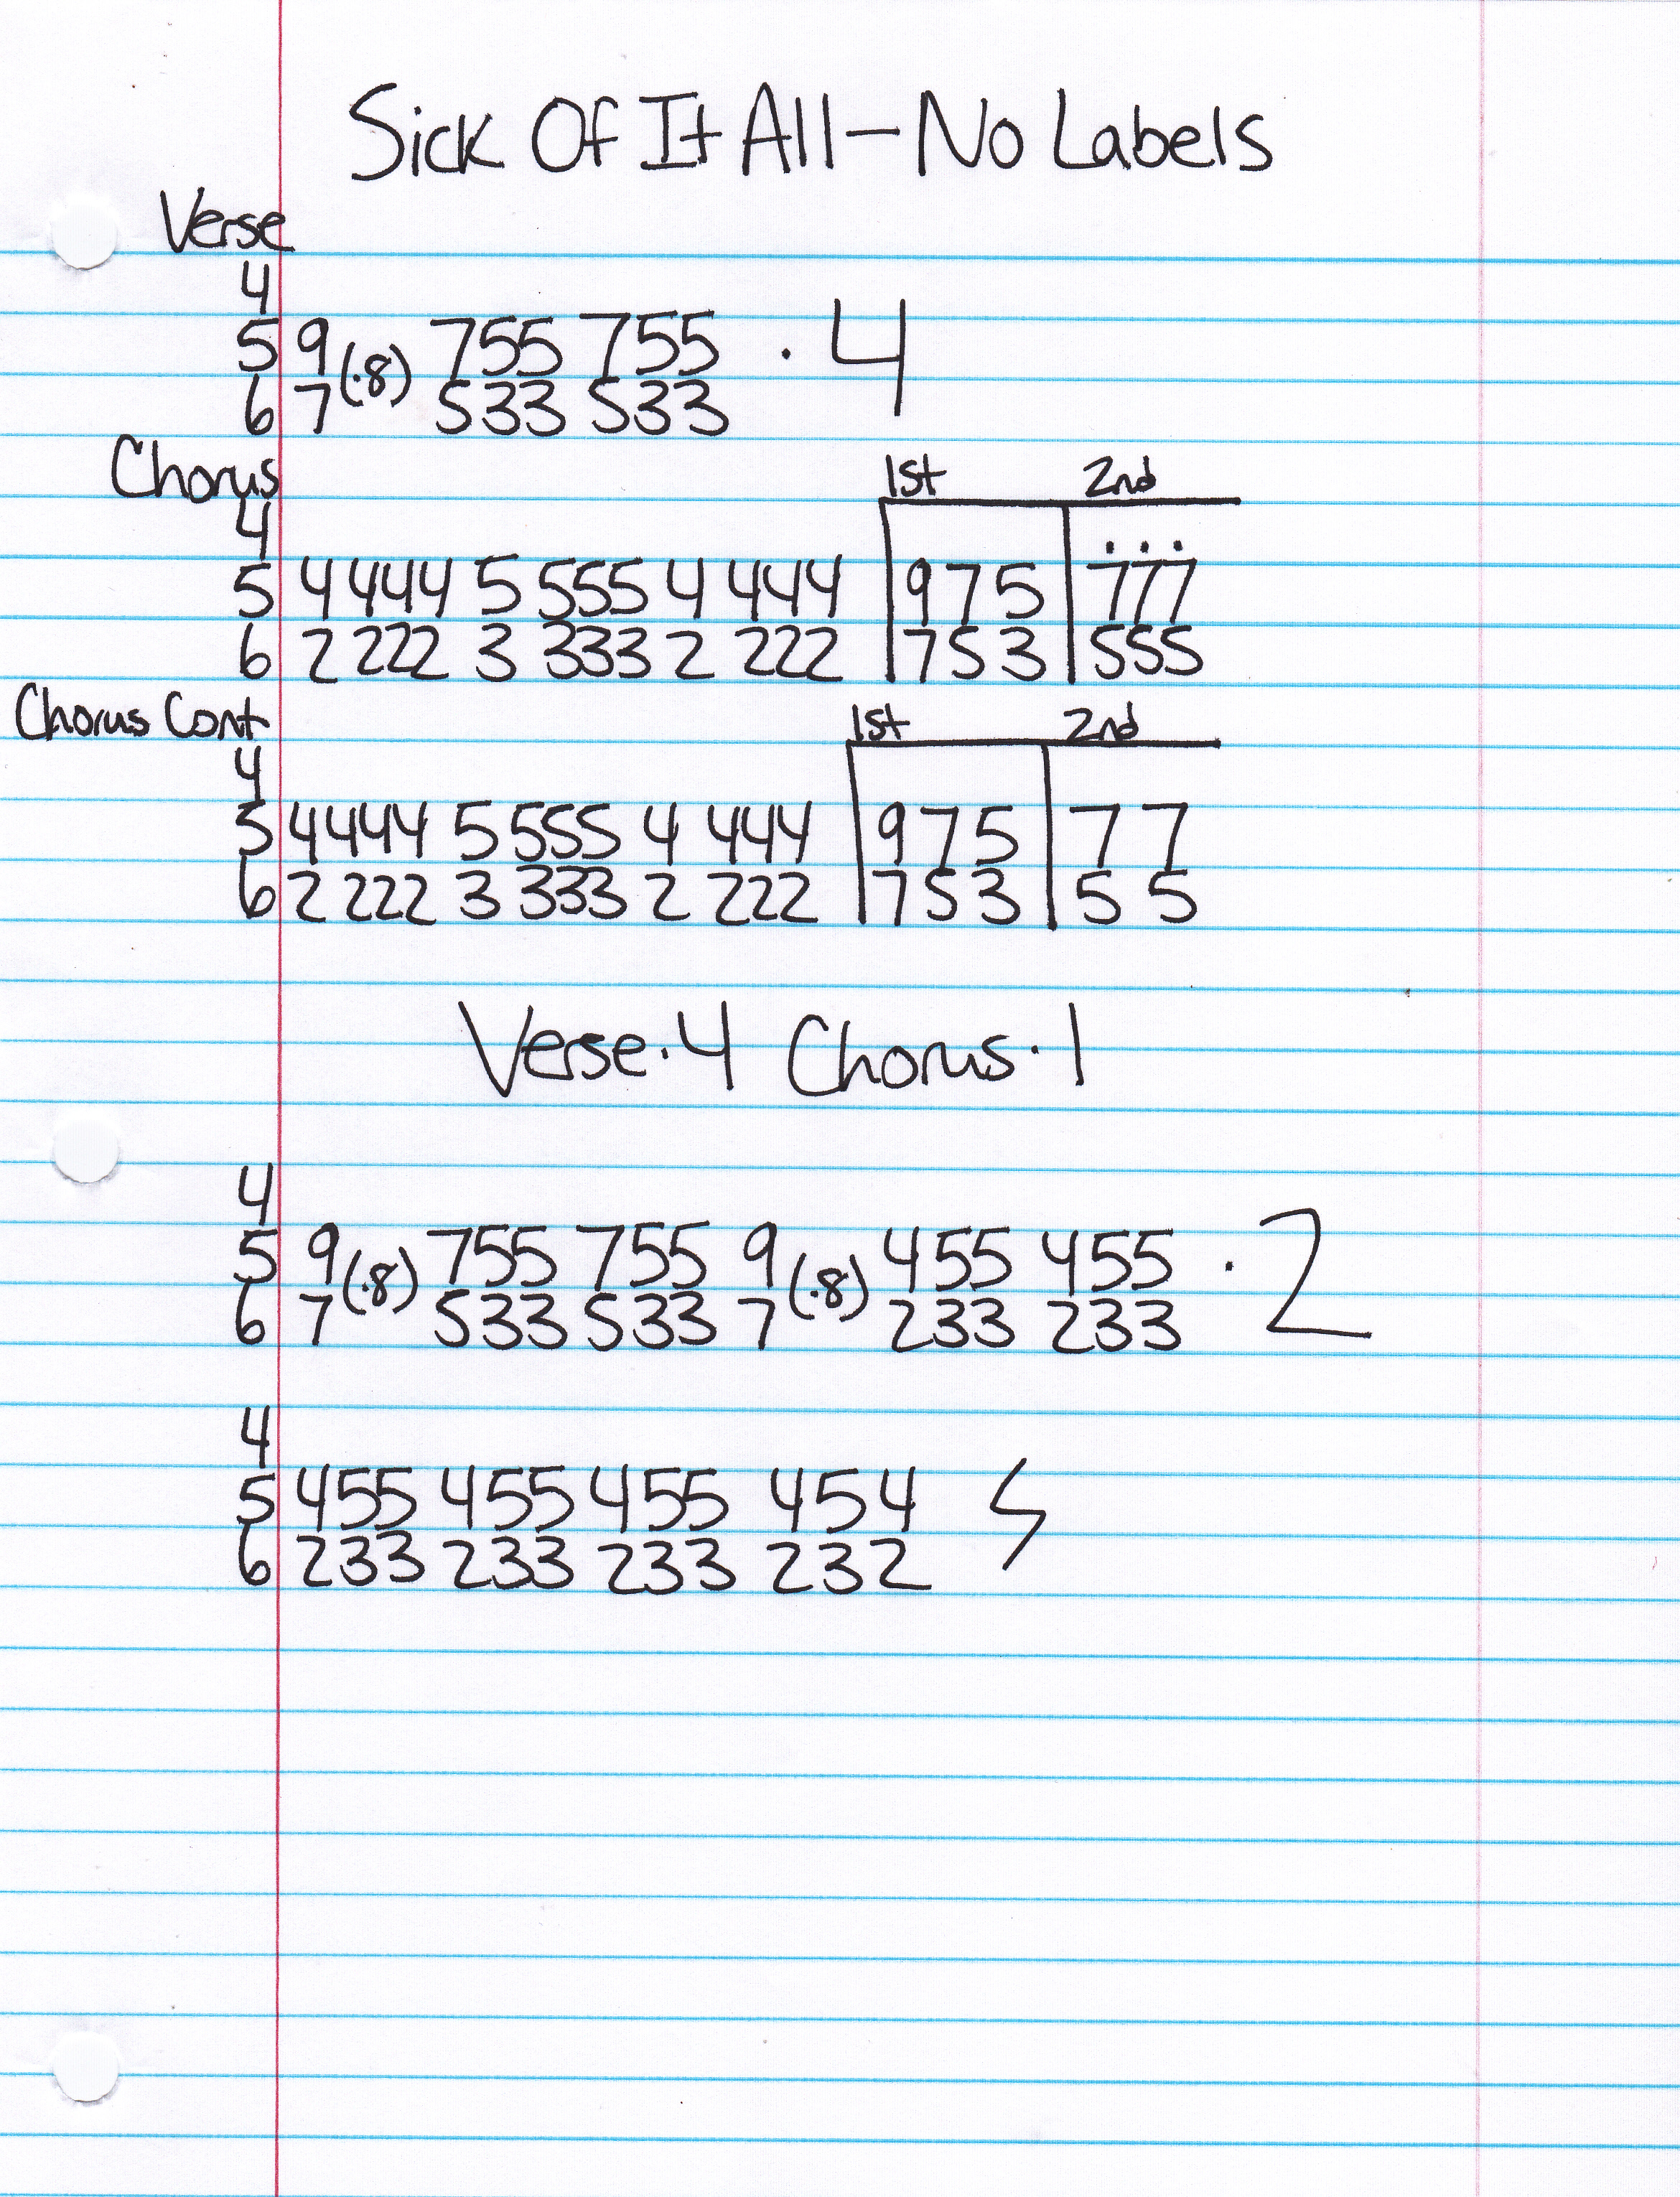 Sick Of It All - No Labels
Verse
4
5 9 (·8) 755 755 · 4
6 7 533 533
Chorus 1st 2nd
4
5 4 444 5 555 4 444 975 777
6 2 222 3 333 2 222 753 555
Chorus Cont 1st 2nd
4
5 4 444 5 555 4 444 975 7 7
6 2 222 3 333 2 222 753 5 5
Verse·4 Chorus·1
4
5 9 (·8) 755 755 9 (·8) 455 455 · 2
6 7 533 533 7 233 233
4
5 455 455 455 454
6 233 233 233 232